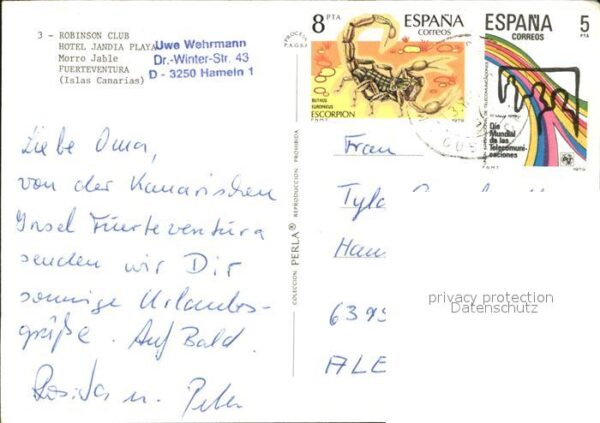 3 - ROBINSON CLUB
HOTEL JANDIA PLAYA
Morro Jable
FUERTEVENTURA
(Islas Canarias)
Uwe Wehrmann
Dr.-Winter-Str. 43
D - 3250 Hameln 1
8 PTA
ESPAÑA
CORREOS
BUTHUS
EUROPAEUS
ESCORPION
F.N.M.T.
1979
ESPAÑA
CORREOS
5
PTA
DIA MUNDIAL DE TELECOMUNICACIONES
Día
Mundial
de las
Telecomuni-
caciones
F.N.M.T.
1979
Liebe Oma,
von der Kanarischen
Insel Fuerteventura
senden wir Dir
sonnige Urlaubs-
grüße. Auf Bald.
u. Peter
COLECCION PERLA® REPRODUCCION PROHIBIDA
Frau
Han
ALE
privacy protection
Datenschutz